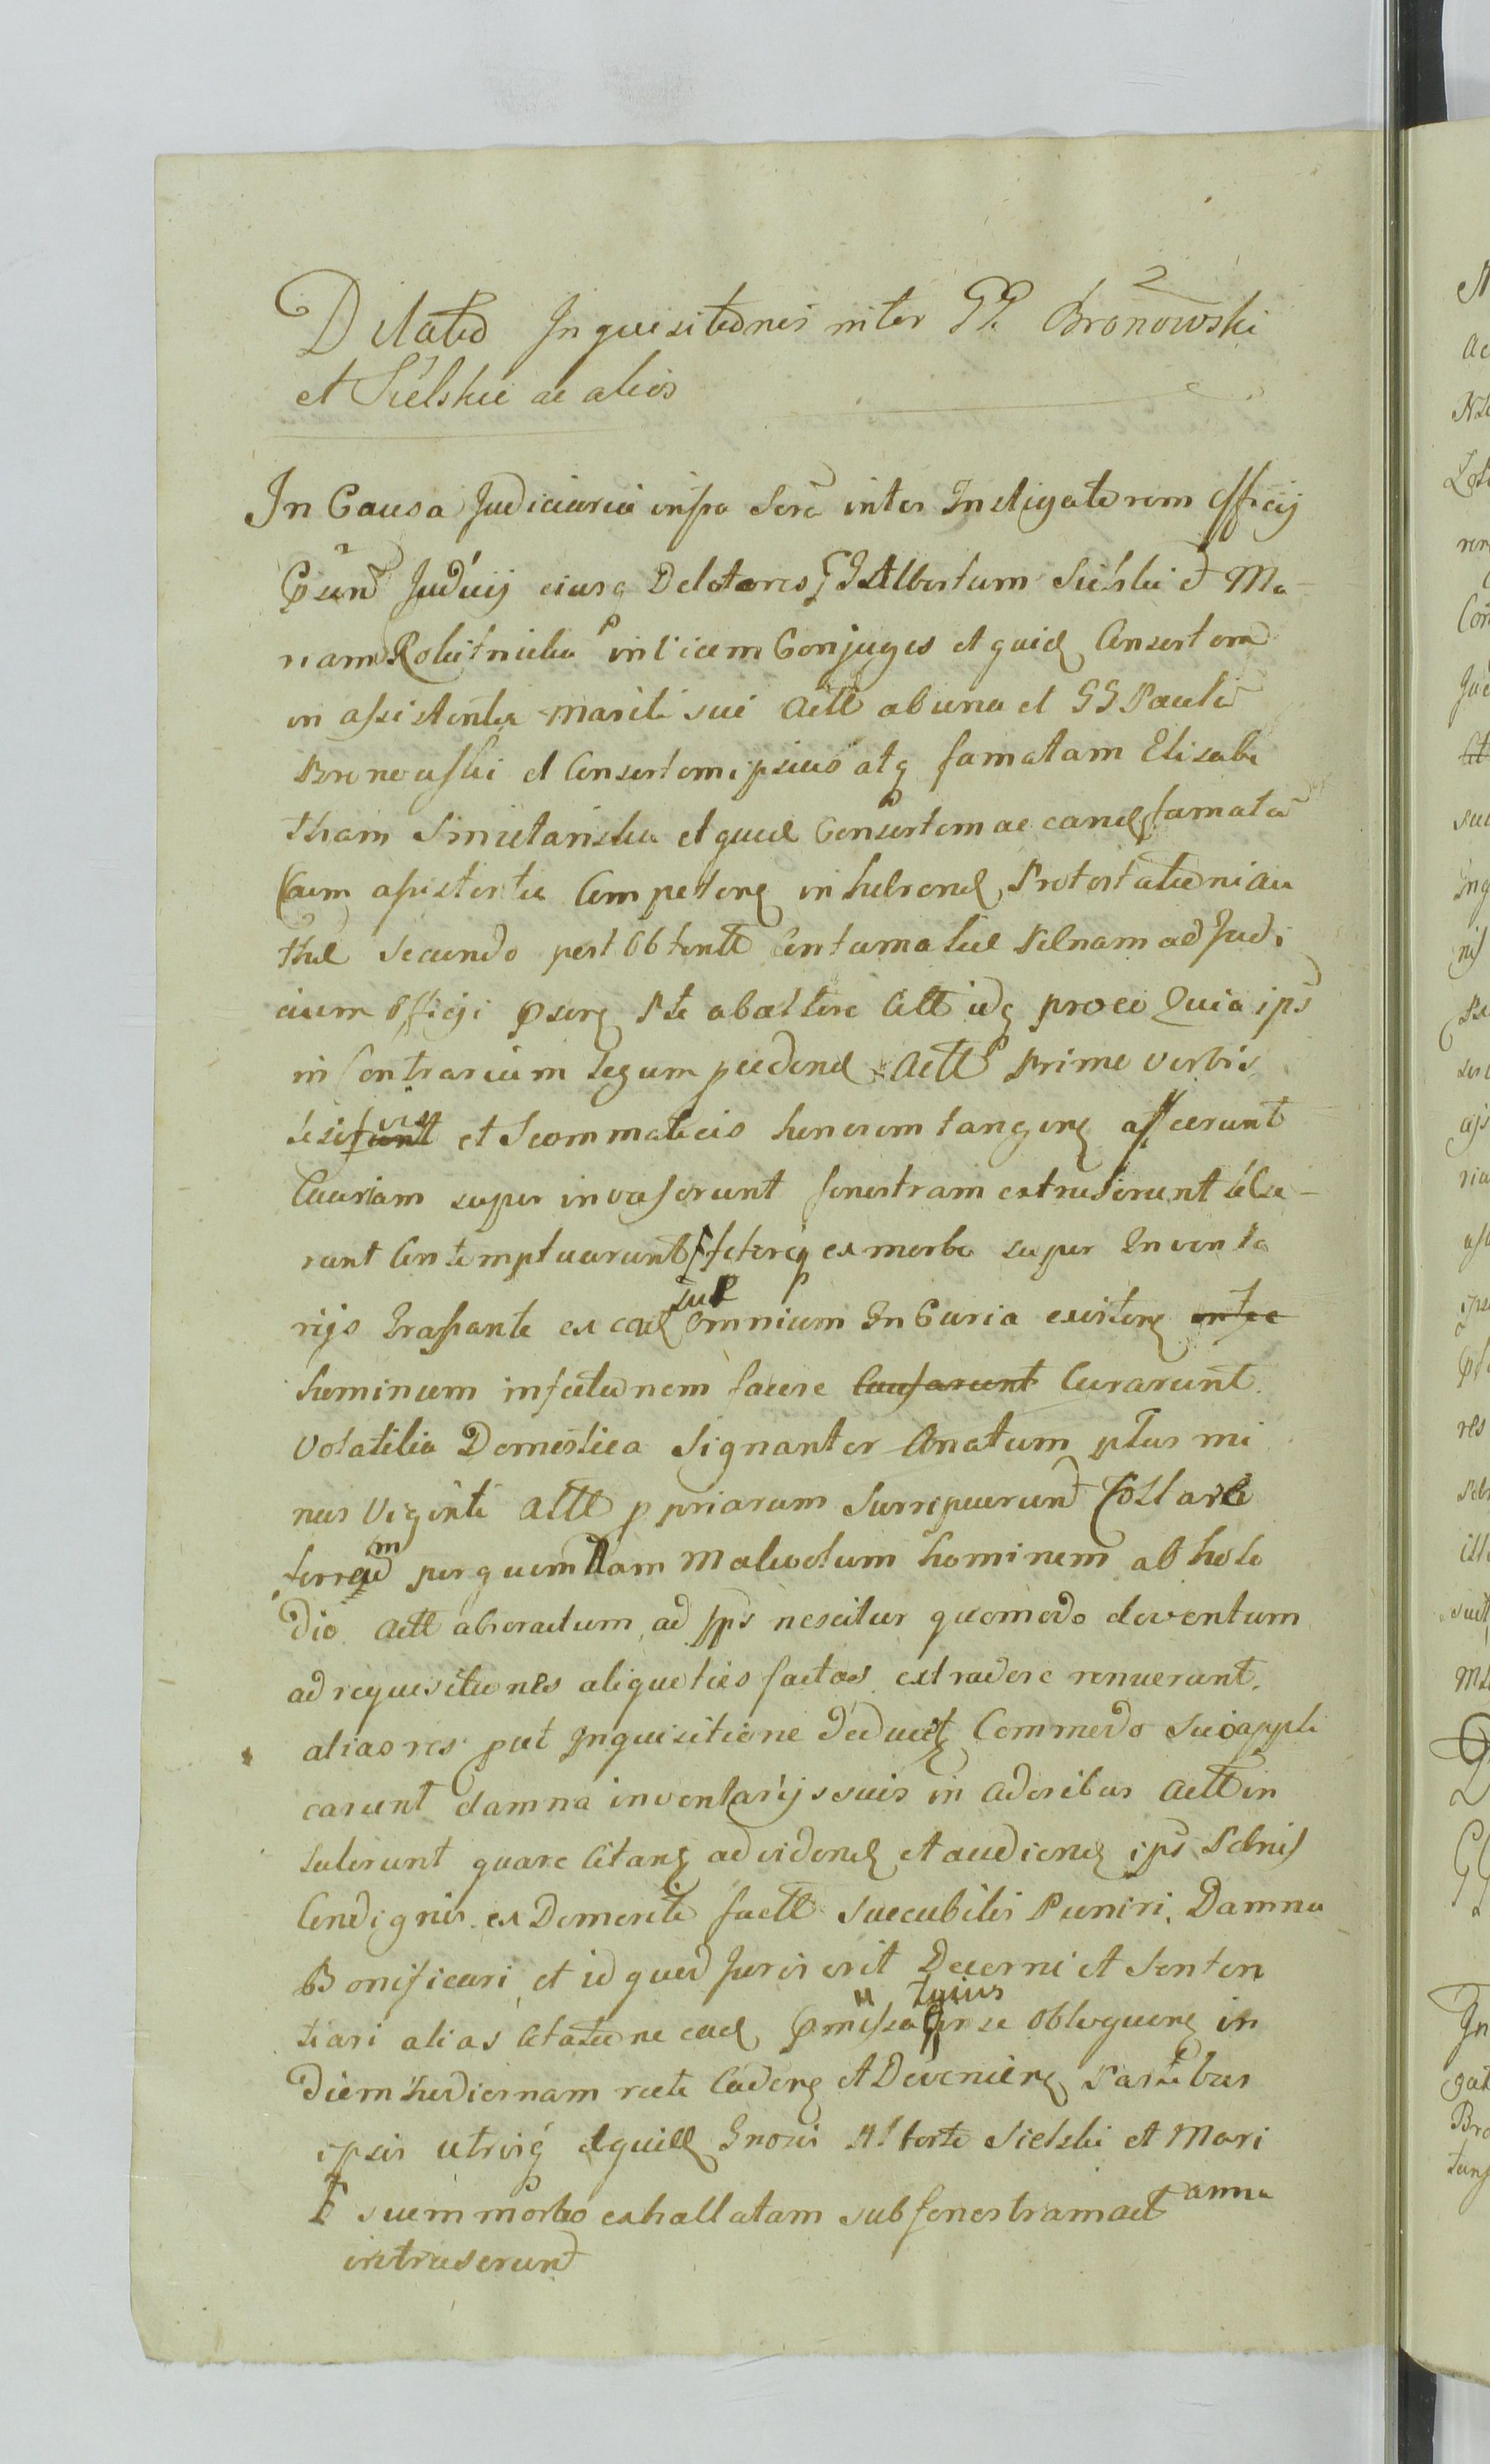 2
Dilatio Inquisitionis inter GG. Bronowski
et Sielskie ac alios
In Causa Judiciaria infra Scra inter Instigatorem Officij
Judicij eiusq Delatores GG Albertum Sielski et Ma-
riam Rolitnicka invicem Conjuges et quid Consortem
in assistentia Mariti sui Actt ab una et GG Pauli
Bronowski et Consortem ipsius atq famatam Elisabe
tham Smietanska et quid Consortem ac eand famata
Cum assistentia Competenq inherend Protestationi au
thel Secundo post Obtentt Contumatiae Poenam ad Judi
cium Officij pserq Pte ab altera Citt idq proeo Quia ipsi
in Contrarium Legum pcedend Actt Primo verbis
lesivis et Scommaticis honorem tangenq affecerunt
Curiam super invaserunt fenestram extruserunt
runt Contemptuarunt feterq ex morbo super Inventa
rijs Grassante ex ead sue Omnium In Curia existenq
hominum infectionem facere Causarunt Curarunt
Volatilia Domestica Signanter Anatum plus mi
nus Viginti Actt ppriarum Surripuerunt Collare
ferreum per quemdam Malevolum hominem ab hosto
dio Actt abstractum ad ips nescitur quomodo deventum
ad requisitiones aliquoties factas extradere renuerunt.
alias res put Inquisitione deducetq Commodo suo appli
carunt damna inventarijs suis in Aderibus Actt in
tulerunt quare Citanq ad videnq et audienq ipsi Poenis
Condignis ex Demerito factt Succubitis Puniri, Damna
Bonificari, et id quod Juris erit Decerni et Senten
tiari alias Citatione ead pmissa latius in se Obloquenq in
Diem hodiernam recte Cadenq et Devenienq Partibus
ipsis utrisq et quidd Grosis Alberto Sielski et Mari
anna
suem morbo exhallatam sub fenestram actt
intruserunt